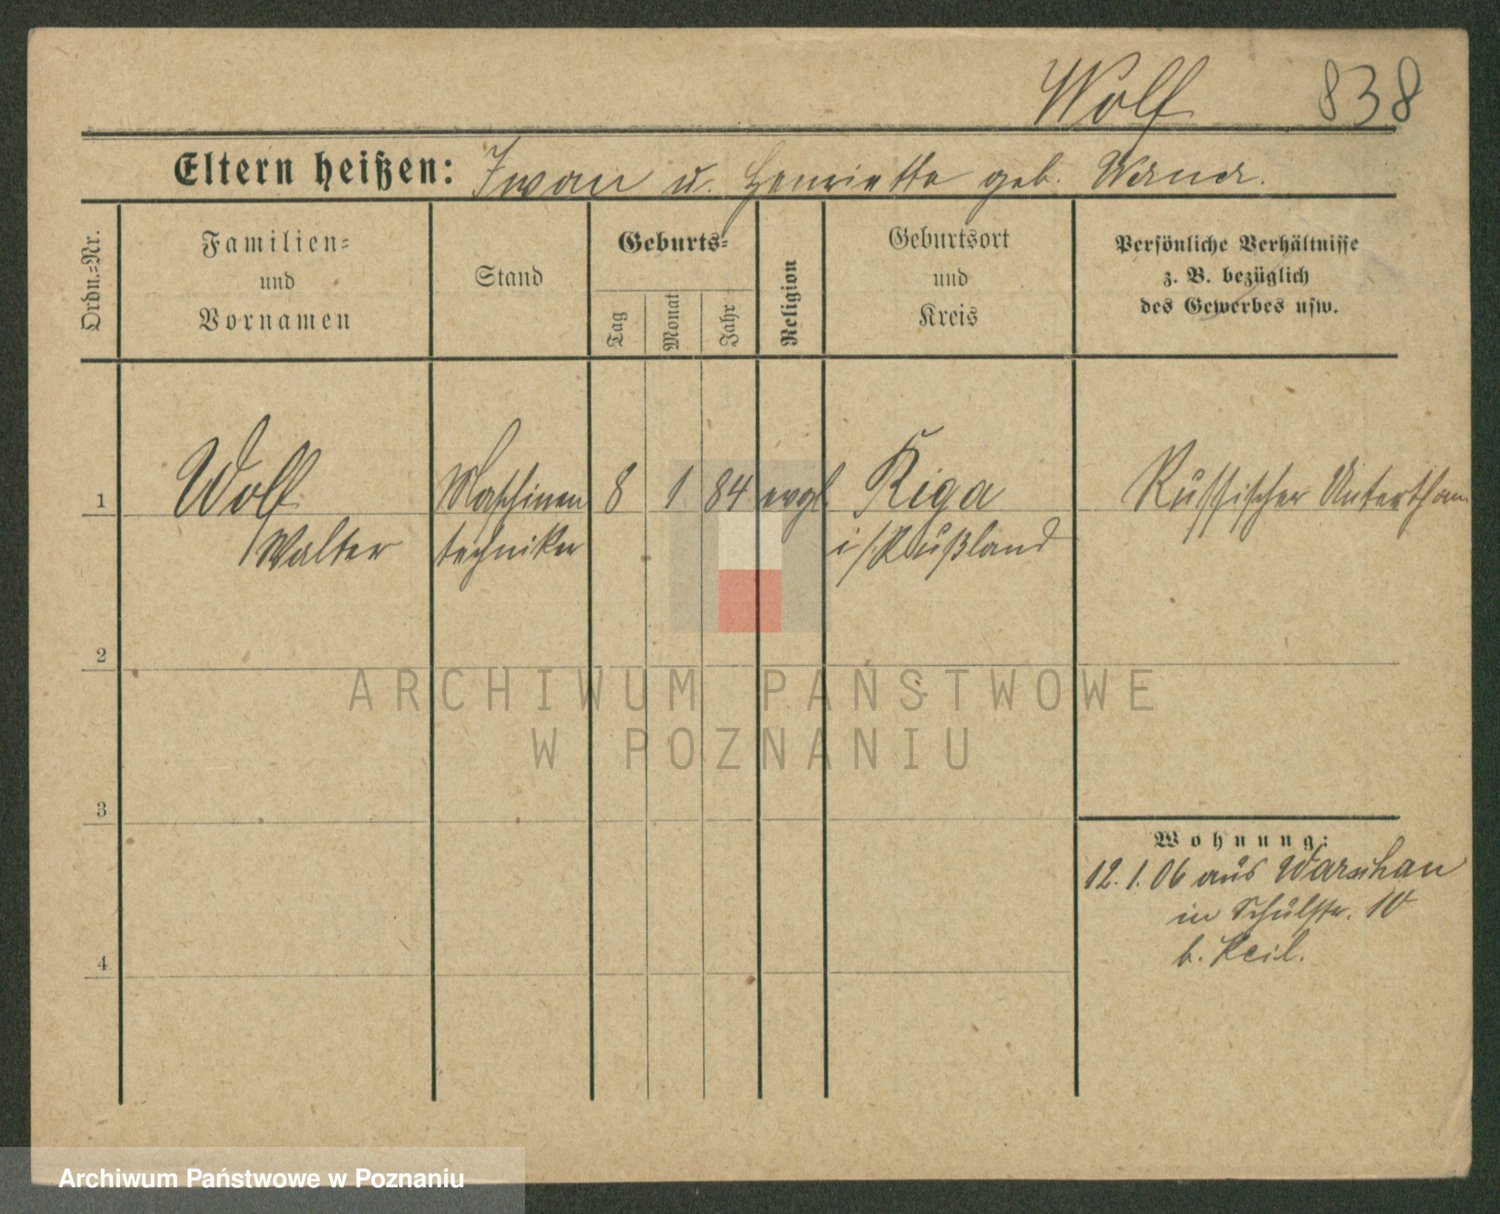 Wolf 838
Eltern heißen: Iwan u. Henriette geb. Wanda.
Ordn.-Nr.
Familien-
und
Vornamen
Stand
Geburts-
Tag
Monat
Jahr
Religion
Geburtsort
und
Kreis
Persönliche Verhältnisse
z. B. bezüglich
des Gewerbes usw.
1 Wolf Maschinen 8 1 84 evgl. Riga Russischer Unterthan
Walter techniker i/Rußland
2
3
Wohnung:
12.1.06 aus Warschau
in Schulstr. 10
b. Keil.
4
ARCHIWUM PAŃSTWOWE
W POZNANIU
Archiwum Państwowe w Poznaniu